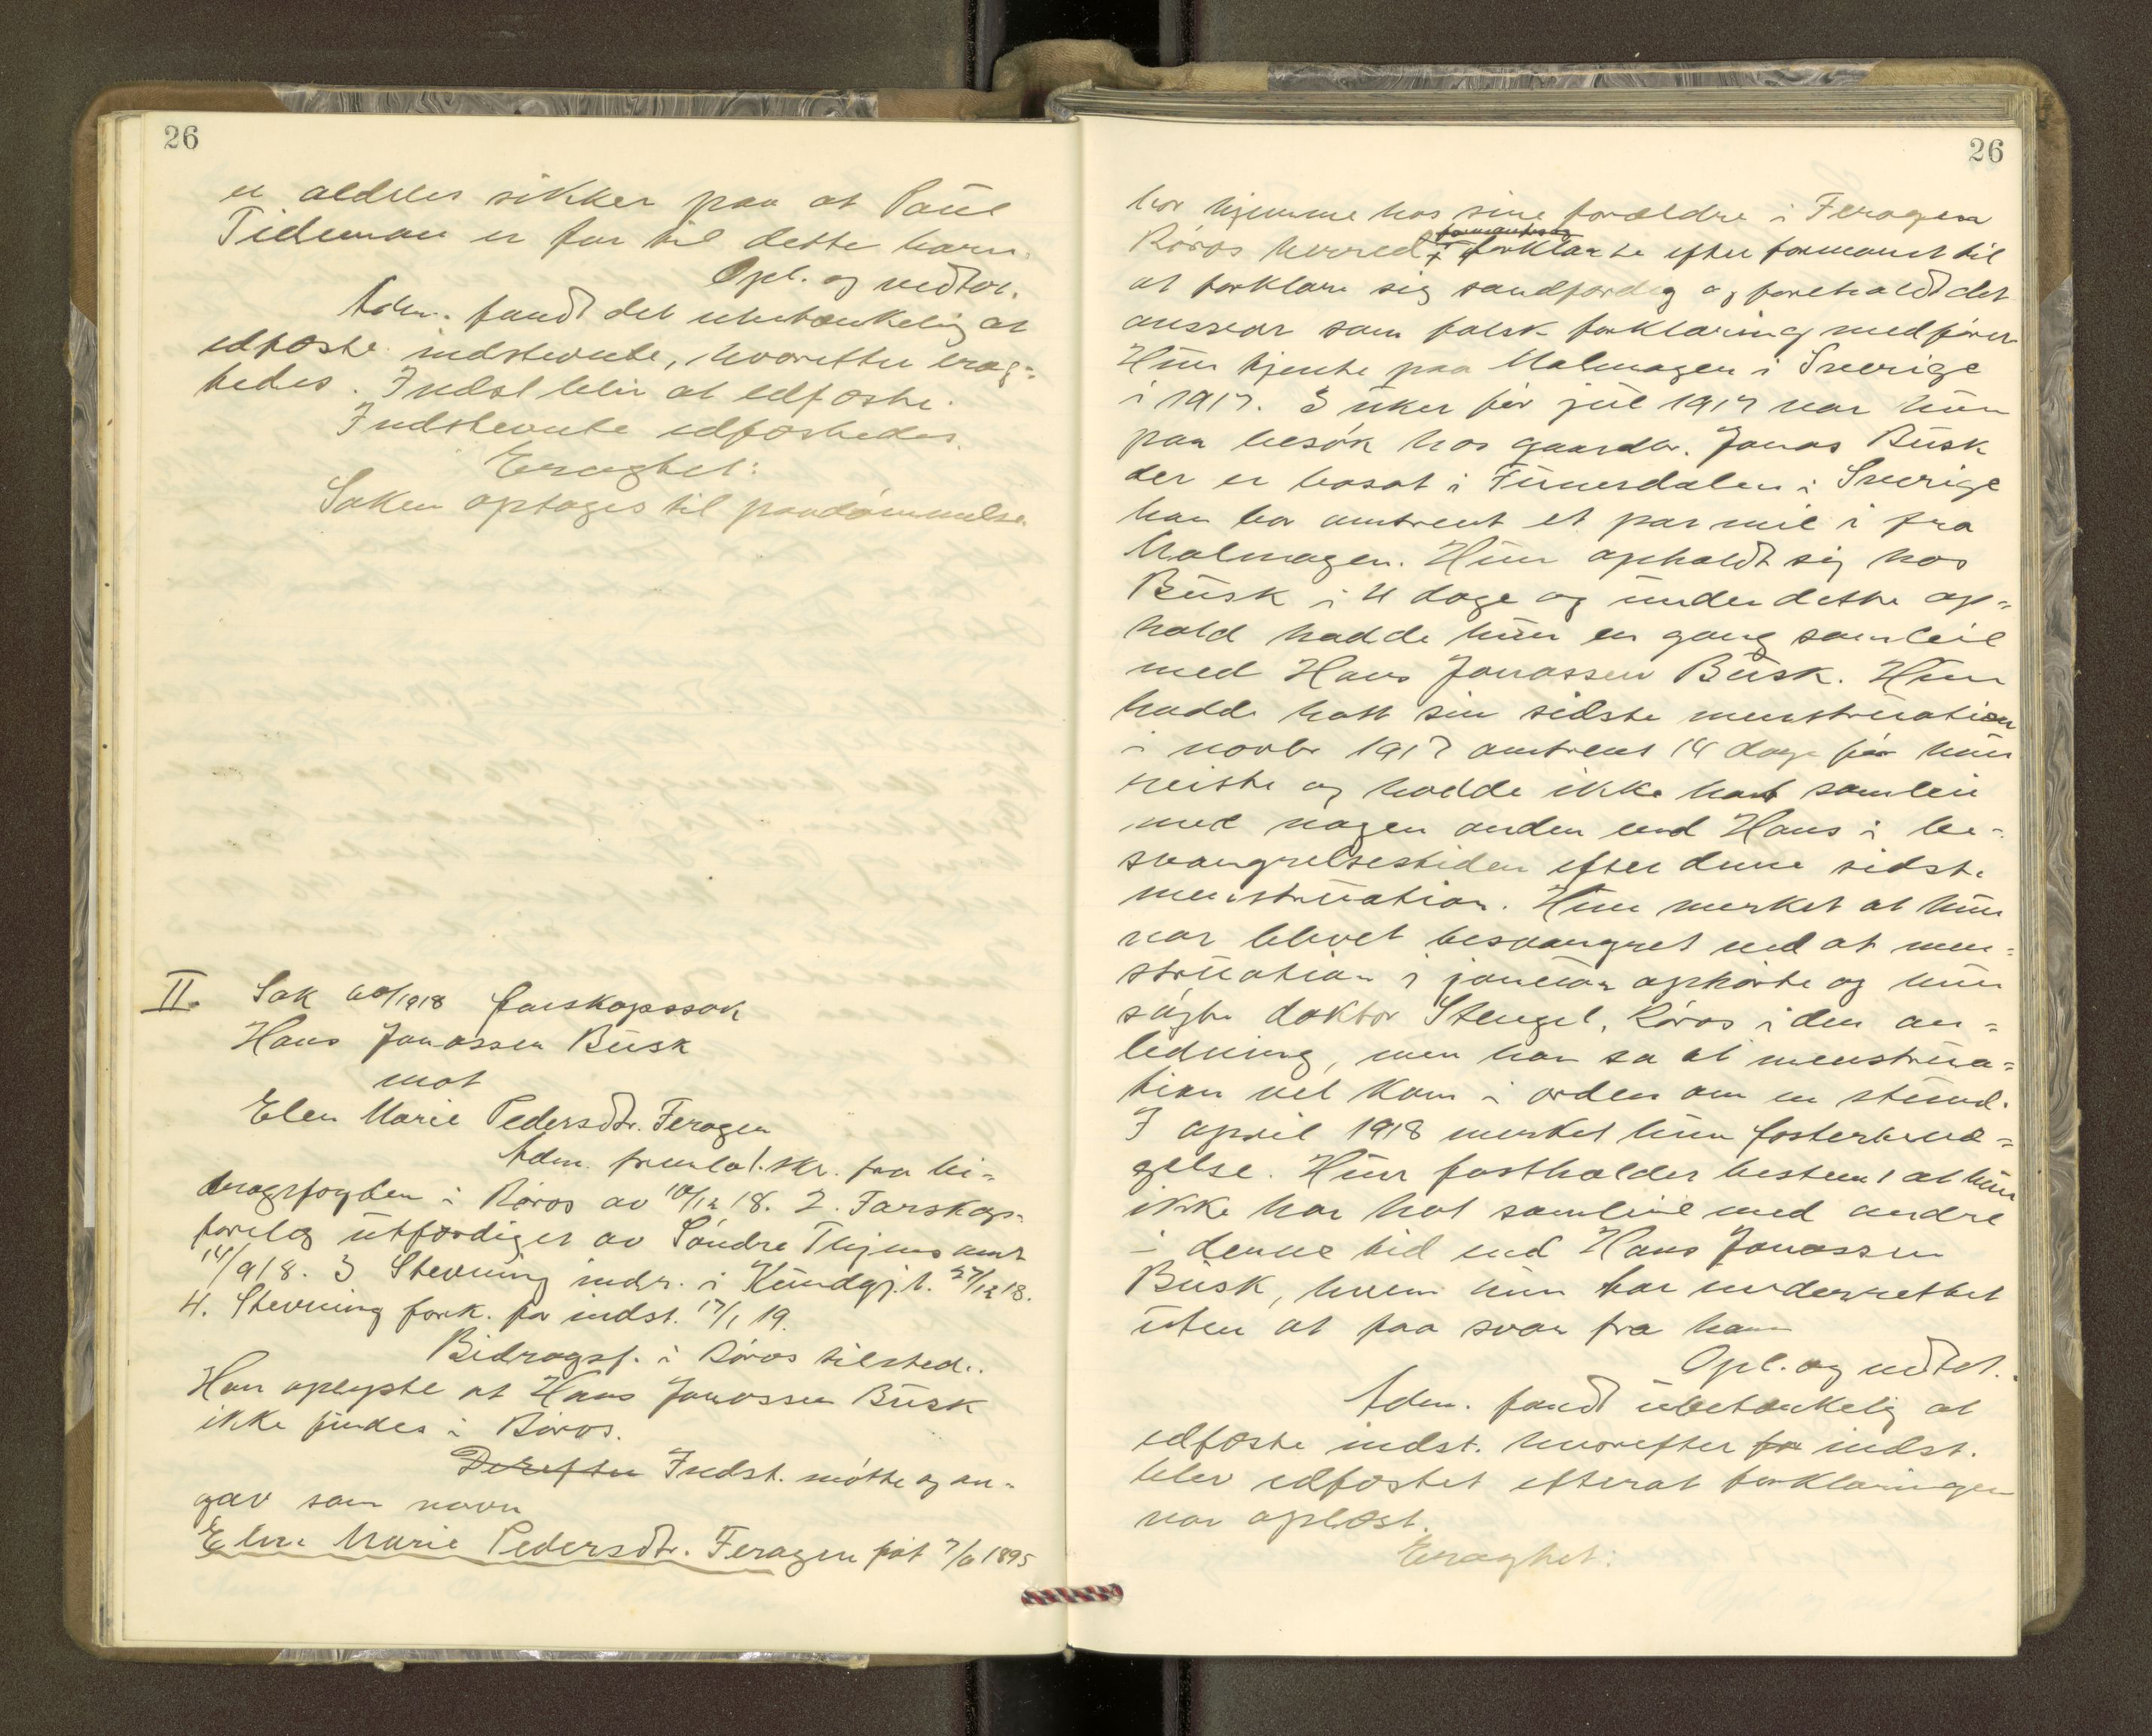 26
er aldeles sikker paa at Paul
Tideman er far til dette barn.
Opl. og vedtat.
Adm. fandt det ubetænkelig at
edfæste indstevnte, hvorefter erag=
tedes. Indst blir at edfæste.
Indstevnte edfæstedes.
Eragtet:
Saken optages til paadømmelse.
II. Sak 60/1918 farskapssak
Hans Jonassen Busk
mot
Elen Marie Pedersdtr. Feragen
Adm. fremla 1. skr. fra bi=
dragsfogden i Røros av 10/12 18. 2. Farskaps=
forelæg utfærdiget av Søndre Thjems amt
14/9 18. 3 Stevning indr. i Kundgj.t. 27/12 18.
4. Stevning fork. for indst. 17/1 19.
Bidragsf. i Røros tilstede.
Han oplyste at Hans Jonassen Busk
ikke findes i Røros.
Derefter Indst. møtte og an=
gav som navn
Elen Marie Pedersdtr. Feragen født 1895
26
bor hjemme hos sine forældre i Feragen
Røros herred & forklarte efter formanet til
at forklare sig sandfærdig og foreholdt det
ansvar som falsk forklaring medfører
Hun tjente paa Malmagen i Sverige
i 1917. 3 uker før jul 1917 var hun
paa besøk hos gaardbr. Jonas Busk
der er bosat i Funesdalen i Sverige
han bor omtrent et par mil i fra
Malmagen. Hun opholdt sig hos
Busk i 4 dage og under dette op=
hold hadde hun en gang samleie
med Hans Jonassen Busk. Hun
hadde hatt sin sidste menstruation
i novbr 1917 omtrent 14 dage før hun
reiste og hadde ikke hat samleie
med nogen anden end Hans i be=
svangrelsestiden efter denne sidste
menstruation. Hun merket at hun
var blevet besvangret ved at men=
struation i januar ophørte og hun
søgte doktor Stengel, Røros i den an=
ledning, men han sa at menstrua=
tion vel kom i orden om en stund.
I april 1918 merket hun fosterbevæ=
gelse. Hun fastholder bestemt at hun
ikke har hat samleie med andre
i denne tid end Hans Jonassen
Busk, hvem hun har underrettet
uten at faa svar fra ham
Opl. og vedtat.
Adm. fandt ubetænkelig at
edfæste indst. hvorefter for indst.
blev edfæstet efterat forklaringen
var oplæst.
Eragtet: